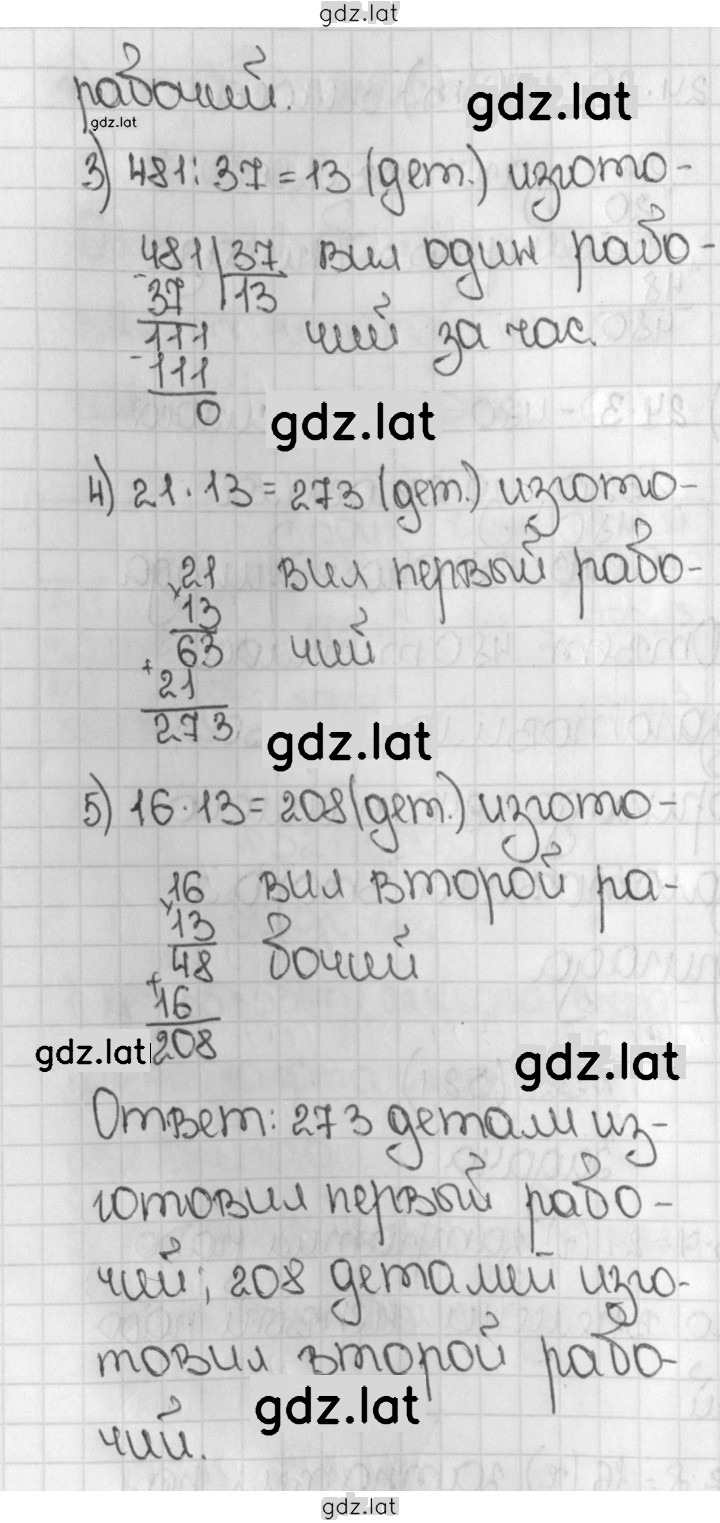 gdz.lat
рабочий.
gdz.lat
gdz.lat
3) 481 : 37 = 13 (дет.) изгото-
481 37 вил один рабо-
- 37 13
111 чий за час.
- 111
0
gdz.lat
4) 21 · 13 = 273 (дет.) изгото-
× 21 вил первый рабо-
13
63 чий
+ 21
273
gdz.lat
5) 16 · 13 = 208 (дет.) изгото-
× 16 вил второй ра-
13
48 бочий
+ 16
208
gdz.lat
gdz.lat
Ответ: 273 детали из-
готовил первый рабо-
чий; 208 деталей изго-
товил второй рабо-
чий.
gdz.lat
gdz.lat